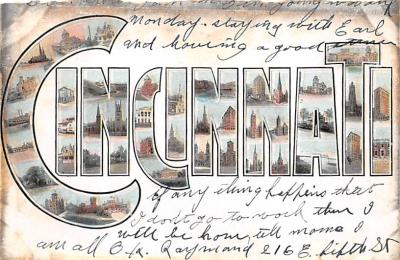 Monday. staying with Earl
and having a good time
CINCINNATI
if any thing happens that
I don't go to work then I
will be home tell mama I
am all O.K. Raymond 216 E. fifth St